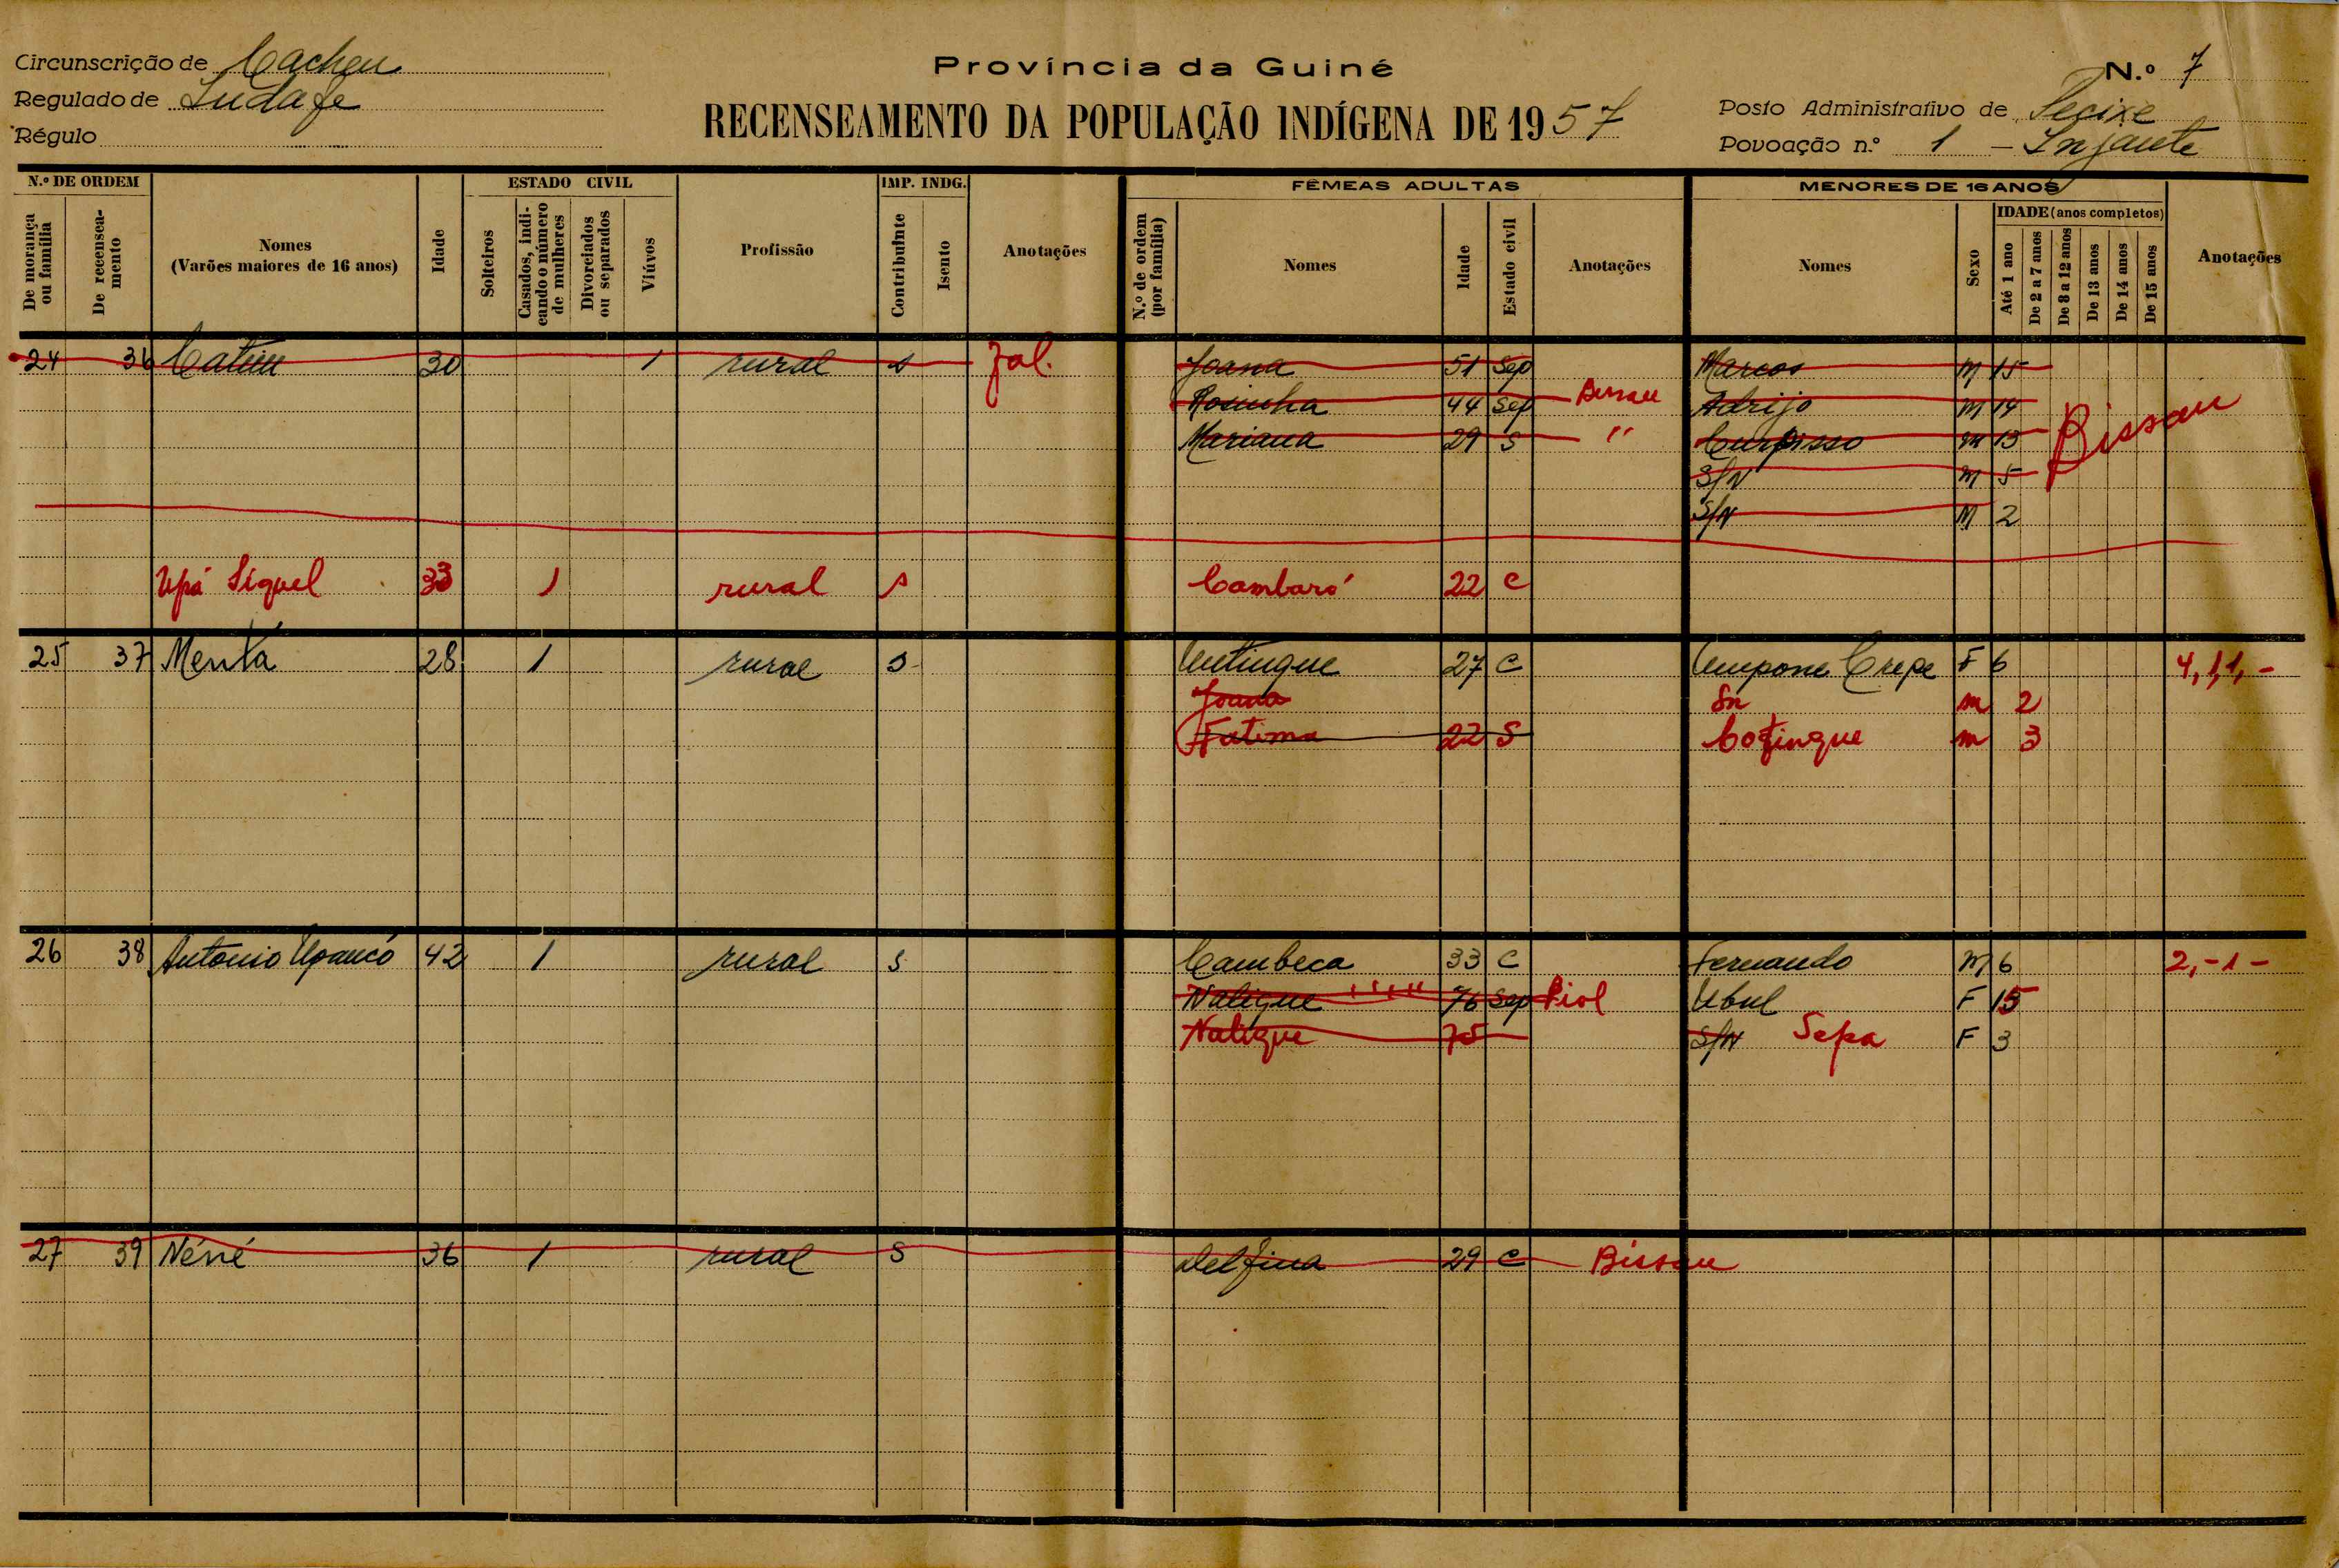 Circunscrição de Cacheu
Regulado de
Régulo
Província da Guiné
RECENSEAMENTO DA POPULAÇÃO INDÍGENA DE 1957
N.º 7
Posto Administrativo de
Povoação n.º 1 -
N.º DE ORDEM
De morança ou família
De recenseamento
Nomes
(Varões maiores de 16 anos)
Idade
ESTADO CIVIL
Solteiros
Casados, indicando o número de mulheres
Divorciados ou separados
Viúvos
Profissão
IMP. INDG.
Contribuinte
Isento
Anotações
FÊMEAS ADULTAS
N.º de ordem (por família)
Nomes
Idade
Estado civil
Anotações
MENORES DE 16 ANOS
Nomes
Sexo
IDADE (anos completos)
Até 1 ano
De 2 a 7 anos
De 8 a 12 anos
De 13 anos
De 14 anos
De 15 anos
Anotações
24 36 Catum 30 1 rural s Fal. Joana 51 Sep Marcos M 15
Rosinha 44 Sep Bissau Adrijo M 14
Mariana 29 S " M 13 Bissau
S/N M 5
S/N M 2
Upá Siquel 33 1 rural s Cambaró 22 C
25 37 Menta 28 1 rural s Untingue 27 C F 6 4,1,1,-
Joana Sn m 2
Fatima 22 S m 3
26 38 Antonio 42 1 rural s Cambeca 33 C Fernando M 6 2,-1-
Natique 76 Sep Ubul F 15
Natique 75 S/N Sepa F 3
27 39 Néné 36 1 rural S Delfina 29 C Bissau